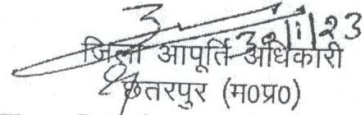 जिला आपूर्ति अधिकारी
छतरपुर (म०प्र०)